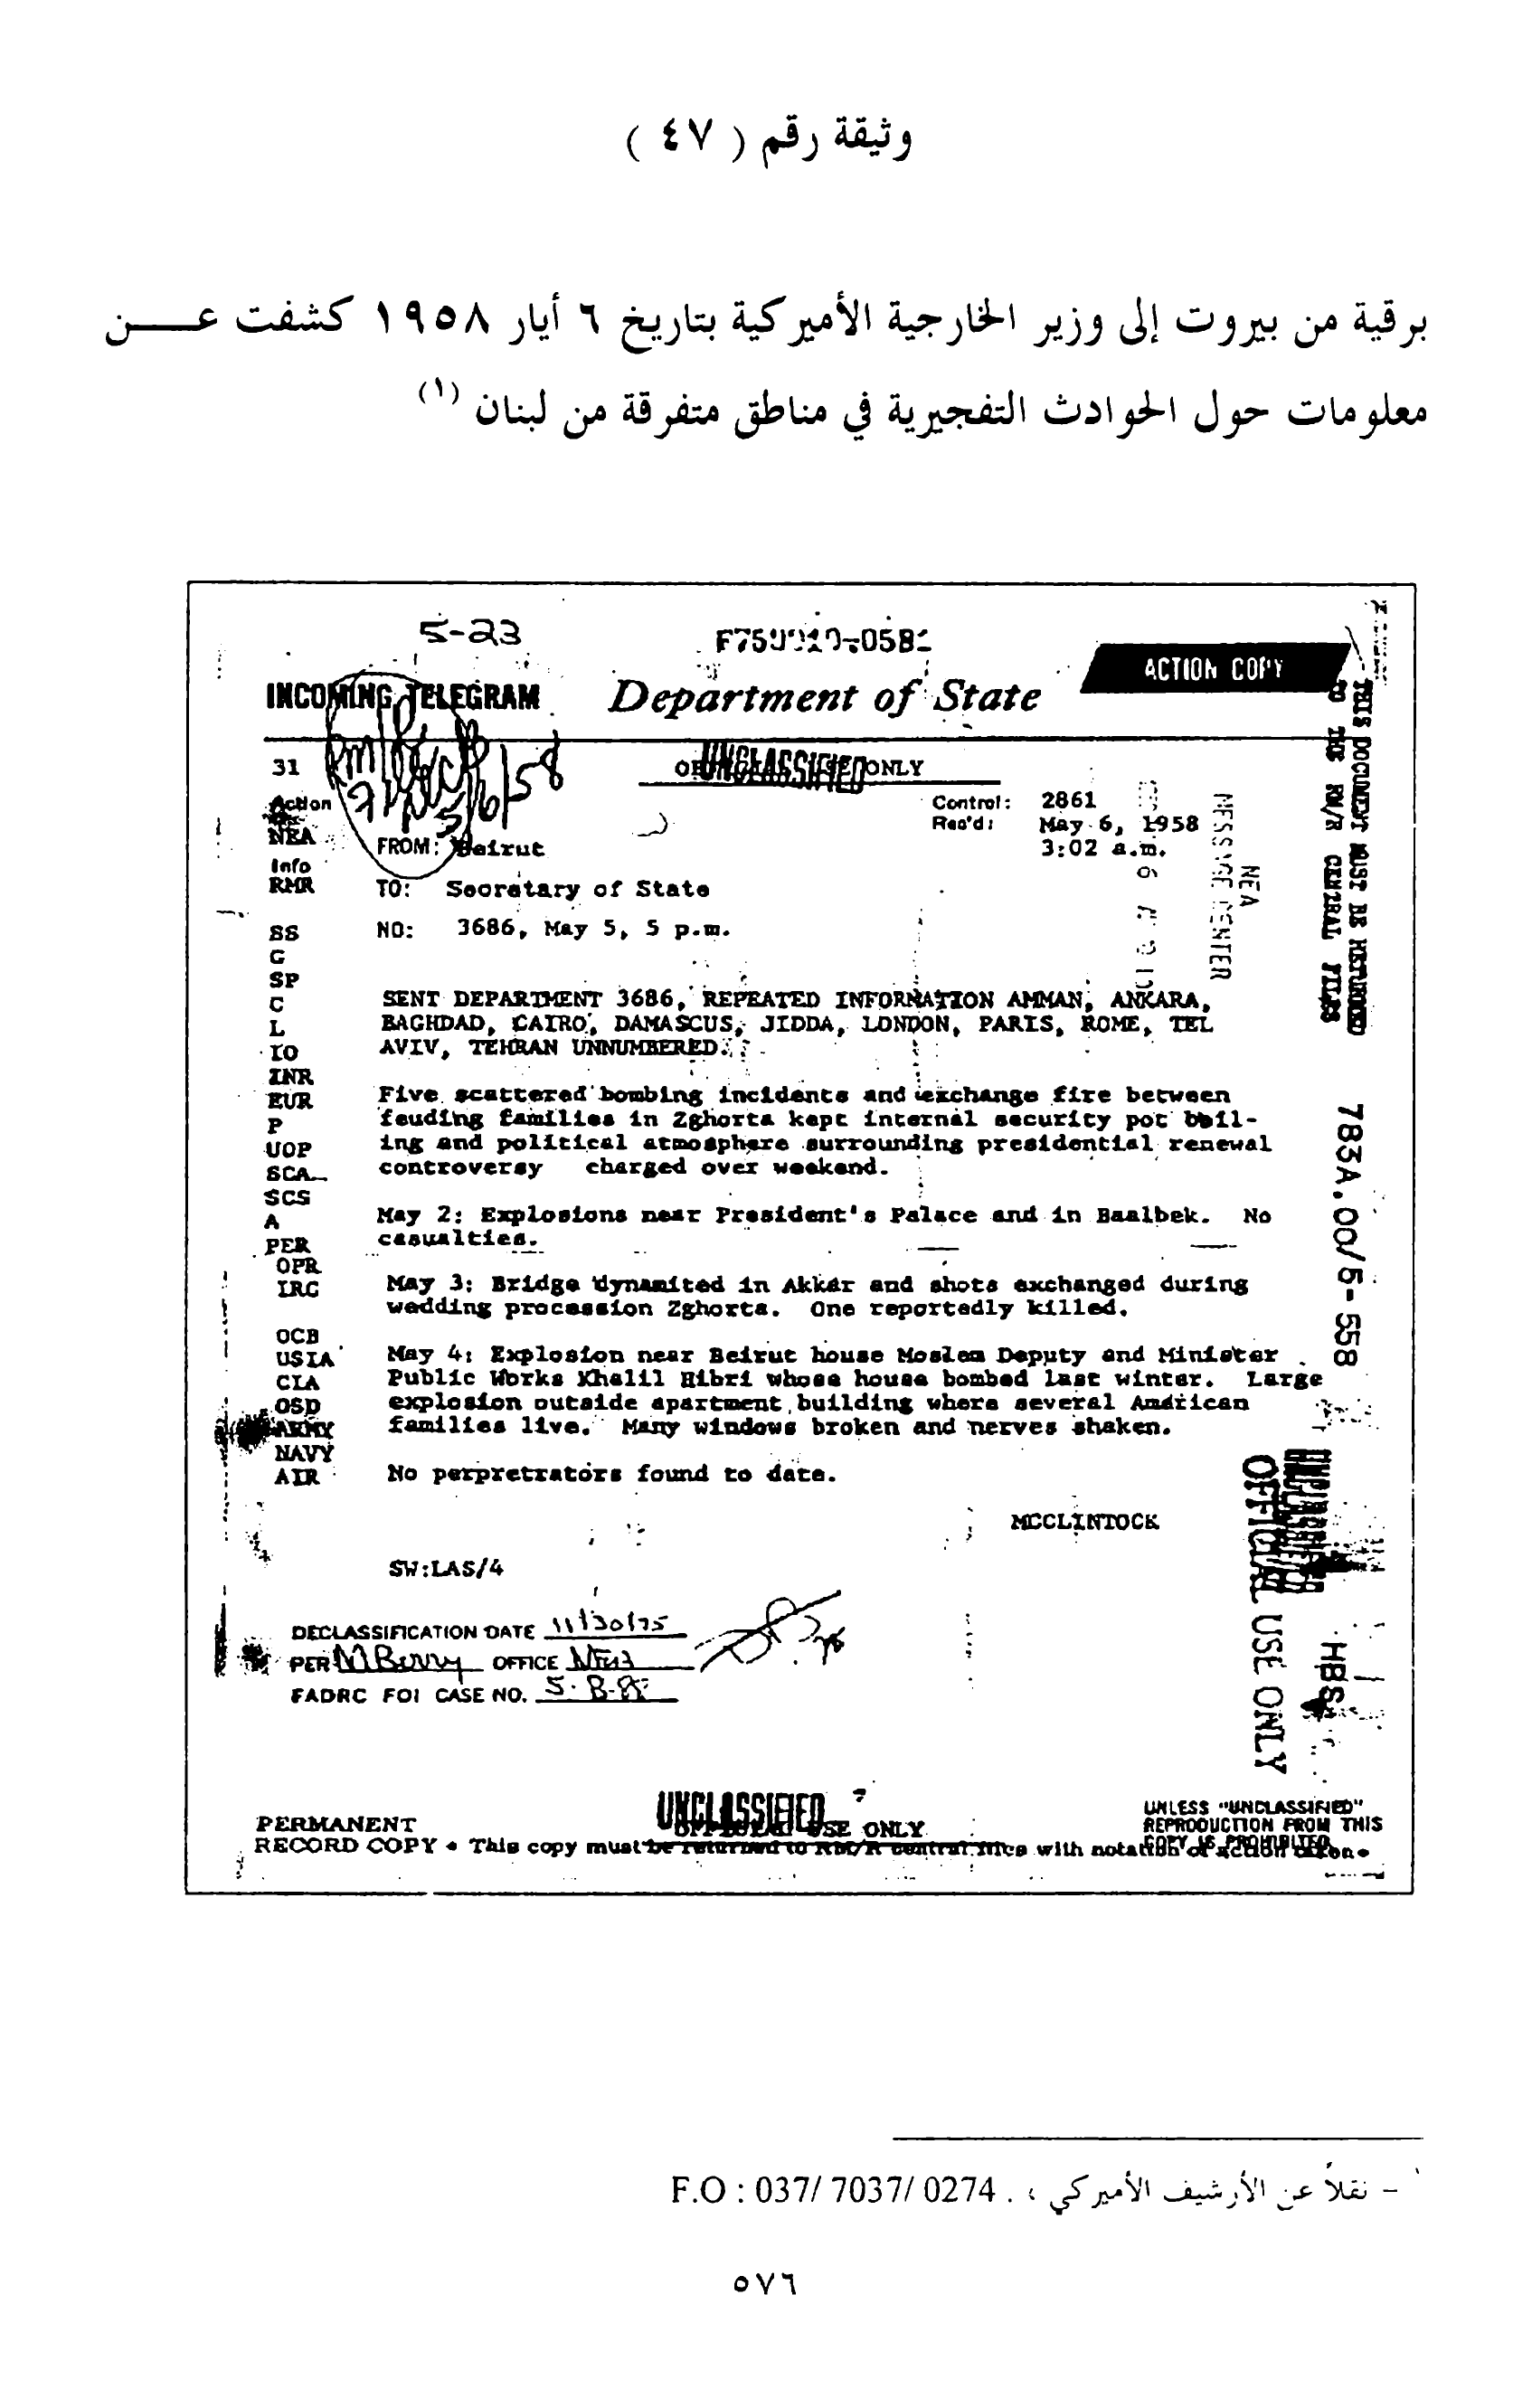 وثيقة رقم ( ٤٧ )
برقية من بيروت إلى وزير الخارجية الأميركية بتاريخ ٦ أيار ١٩٥٨ كشفت عـــن
معلومات حول الحوادث التفجيرية في مناطق متفرقة من لبنان (١)
5-23
ACTION COPY
INCOMING TELEGRAM Department of State
UNCLASSIFIED
ONLY
31
Action
NEA
Info
RMR
SS
G
SP
C
L
IO
INR
EUR
P
UOP
SCA
SCS
A
PER
OPR
IRC
OCB
USIA
CIA
OSD
ARMY
NAVY
AIR
5/6/58
Control: 2861
Rec'd: May 6, 1958
3:02 a.m.
FROM: Beirut
TO: Secretary of State
NO: 3686, May 5, 5 p.m.
SENT DEPARTMENT 3686, REPEATED INFORMATION AMMAN, ANKARA,
BAGHDAD, CAIRO, DAMASCUS, JIDDA, LONDON, PARIS, ROME, TEL
AVIV, TEHRAN UNNUMBERED.
Five scattered bombing incidents and exchange fire between
feuding families in Zghorta kept internal security pot boil-
ing and political atmosphere surrounding presidential renewal
controversy charged over weekend.
May 2: Explosions near President's Palace and in Baalbek. No
casualties.
May 3: Bridge dynamited in Akkar and shots exchanged during
wedding procession Zghorta. One reportedly killed.
May 4: Explosion near Beirut house Moslem Deputy and Minister
Public Works Khalil Hibri whose house bombed last winter. Large
explosion outside apartment building where several American
families live. Many windows broken and nerves shaken.
No perpretrators found to date.
MCCLINTOCK
SW:LAS/4
DECLASSIFICATION DATE 11/30/75
PER MBerry OFFICE
FADRC FOI CASE NO.
NEA
MESSAGE CENTER
THIS DOCUMENT MUST BE RETURNED
TO THE RM/R CENTRAL FILES
783A.00/5-558
OFFICIAL USE ONLY
HBS
UNCLASSIFIED
USE ONLY
UNLESS "UNCLASSIFIED"
REPRODUCTION FROM THIS
COPY IS PROHIBITED
PERMANENT
RECORD COPY • This copy must be returned to RM/R central files with notation of action taken •
١ - نقلاً عن الأرشيف الأميركي ، . F.O : 037/ 7037/ 0274
٥٧٦